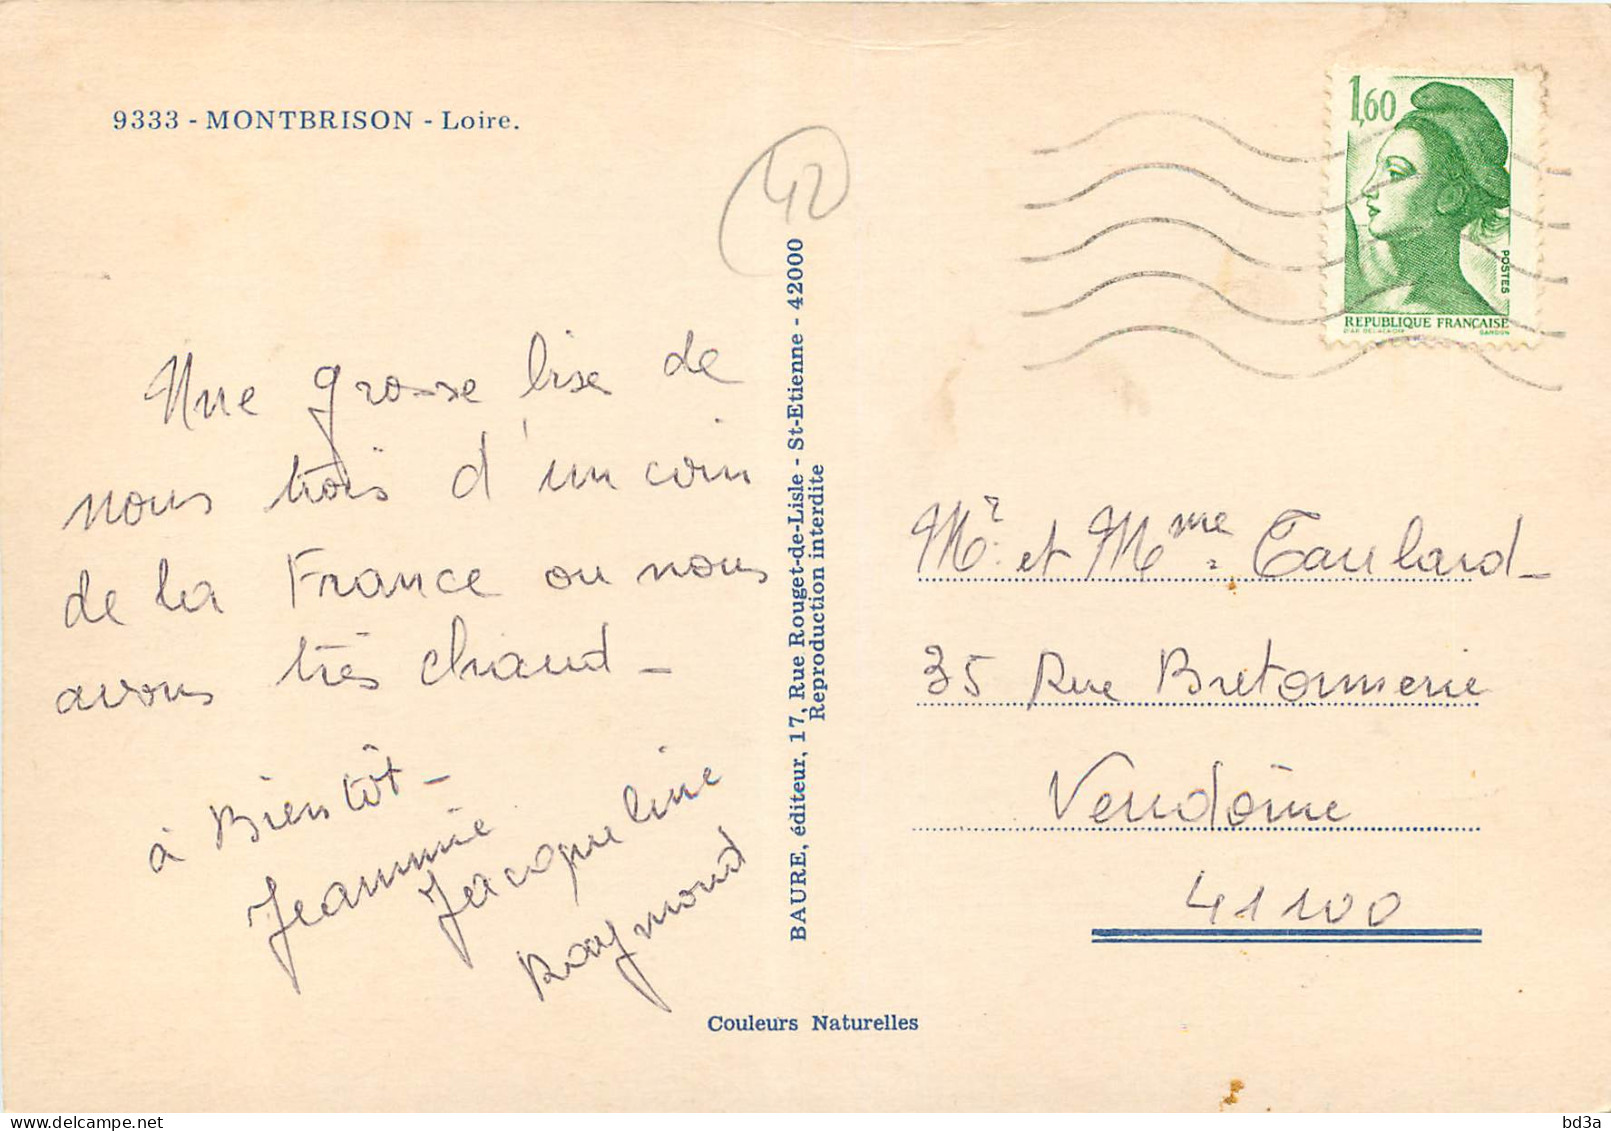 9333 - MONTBRISON - Loire.
42
1,60
POSTES
REPUBLIQUE FRANÇAISE
D'AP. DELACROIX GANDON
Une grosse bise de
nous trois d'un coin
de la France ou nous
avons très chaud -
à Bientôt -
Jeannie
Jacqueline
Raymond
BAURE, éditeur, 17, Rue Rouget-de-Lisle - St-Etienne - 42000
Reproduction interdite
Mr. et Mme. Taulard -
35 Rue Bretonnerie
Vendôme
41100
Couleurs Naturelles
delcampe.net
bd3a